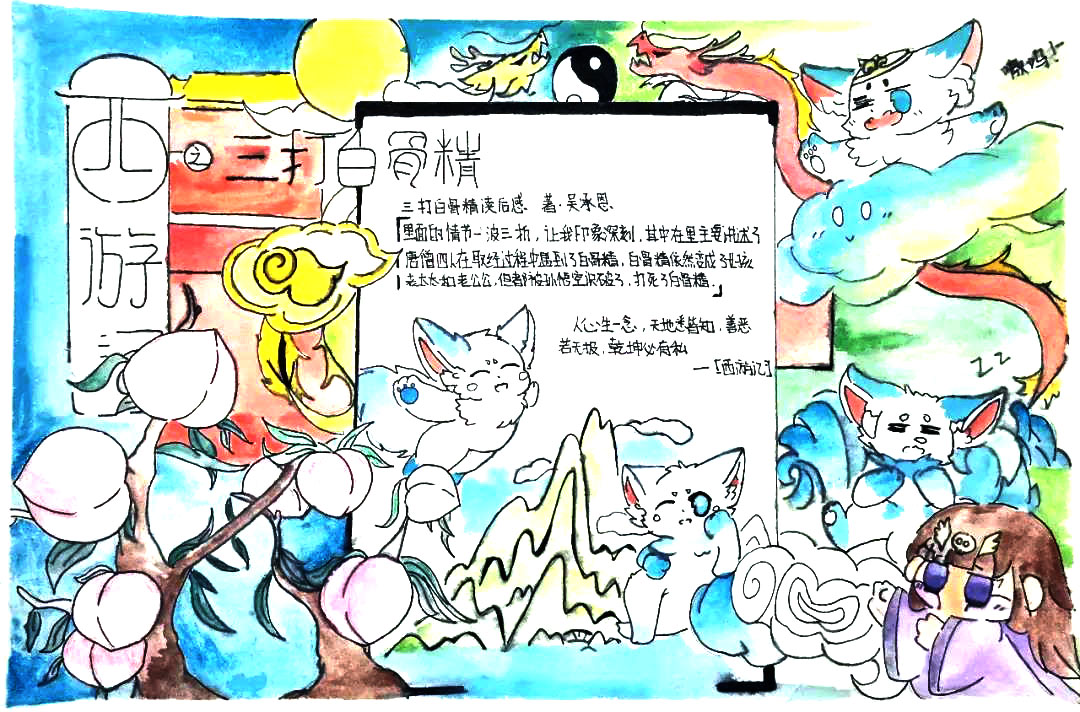 西游记
之三打白骨精
三打白骨精读后感 著·吴承恩
「里面的情节一波三折，让我印象深刻，其中在里主要讲述了
唐僧四人在取经过程中遇到了白骨精，白骨精依然变成了小孩
老太太和老公公，但都被孙悟空识破了，打死了白骨精.」
人心生一念，天地悉皆知，善恶
若无报，乾坤必有私
—［西游记］
嗷呜！
ZZ